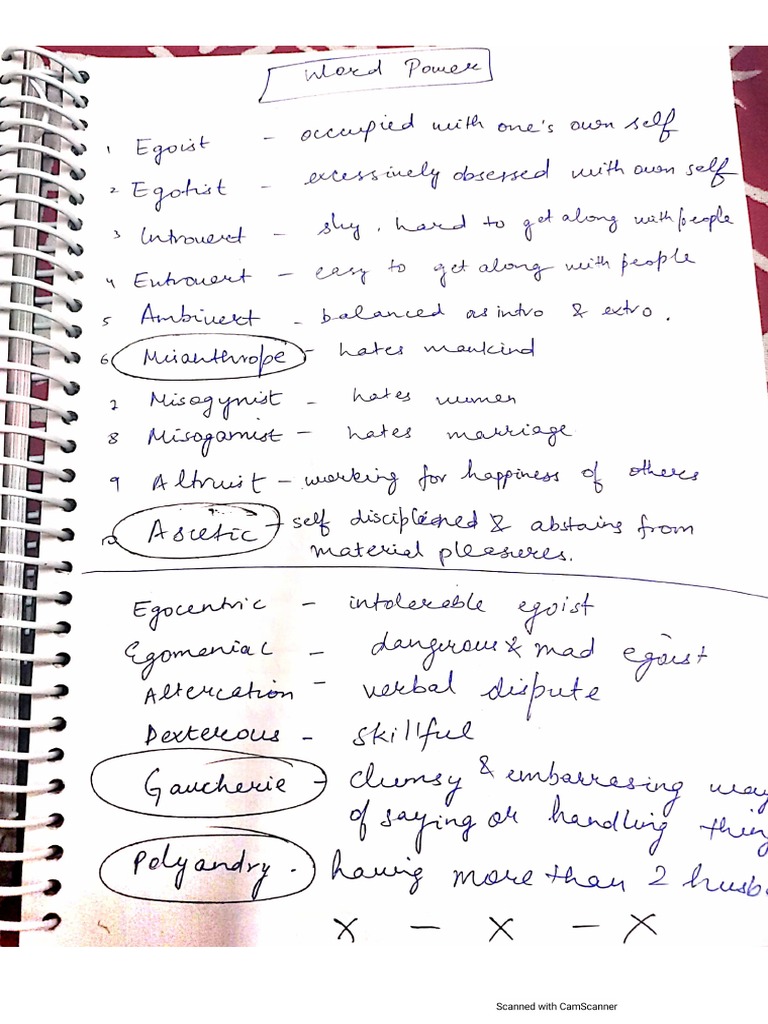 Word Power
1 Egoist - occupied with one's own self
2 Egotist - excessively obsessed with own self
3 Introvert - shy, hard to get along with people
4 Extrovert - easy to get along with people
5 Ambivert - balanced as intro & extro.
6 Misanthrope - hates mankind
7 Misogynist - hates women
8 Misogamist - hates marriage
9 Altruist - working for happiness of others
10 Ascetic - self disciplened & abstains from
material pleasures.
Egocentric - intolerable egoist
Egomeniac - dangerous & mad egoist
Altercation - verbal dispute
Dexterous - skillful
Gaucherie - clumsy & embarresing way
of saying or handling thing
Polyandry. having more than 2 husb
x - x - x
Scanned with CamScanner